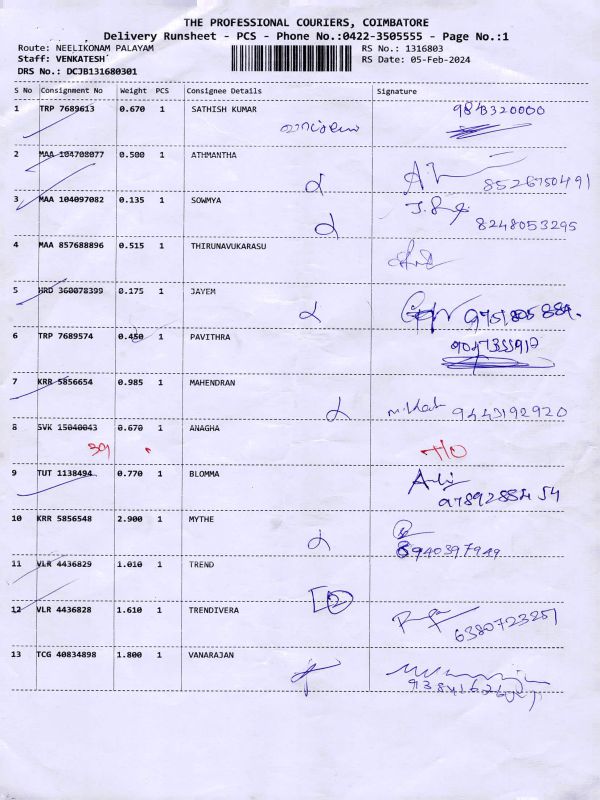 THE PROFESSIONAL COURIERS, COIMBATORE
Delivery Runsheet - PCS - Phone No.:0422-3505555 - Page No.:1
Route: NEELIKONAM PALAYAM RS No.: 1316803
Staff: VENKATESH RS Date: 05-Feb-2024
DRS No.: DCJB131680301
S No Consignment No Weight PCS Consignee Details Signature
1 TRP 7689613 0.670 1 SATHISH KUMAR
2 MAA 104708077 0.500 1 ATHMANTHA
8526750491
3 MAA 104097082 0.135 1 SOWMYA
8248053295
4 MAA 857688896 0.515 1 THIRUNAVUKARASU
5 HRD 360078399 0.175 1 JAYEM
6 TRP 7689574 0.450 1 PAVITHRA
7 KRR 5856654 0.985 1 MAHENDRAN
9443192920
8 SVK 15040043 0.670 1 ANAGHA
9 TUT 1138494 0.770 1 BLOMMA
9789288454
10 KRR 5856548 2.900 1 MYTHE
8940397949
11 VLR 4436829 1.010 1 TREND
2
12 VLR 4436828 1.610 1 TRENDIVERA
6380723251
13 TCG 40834898 1.800 1 VANARAJAN